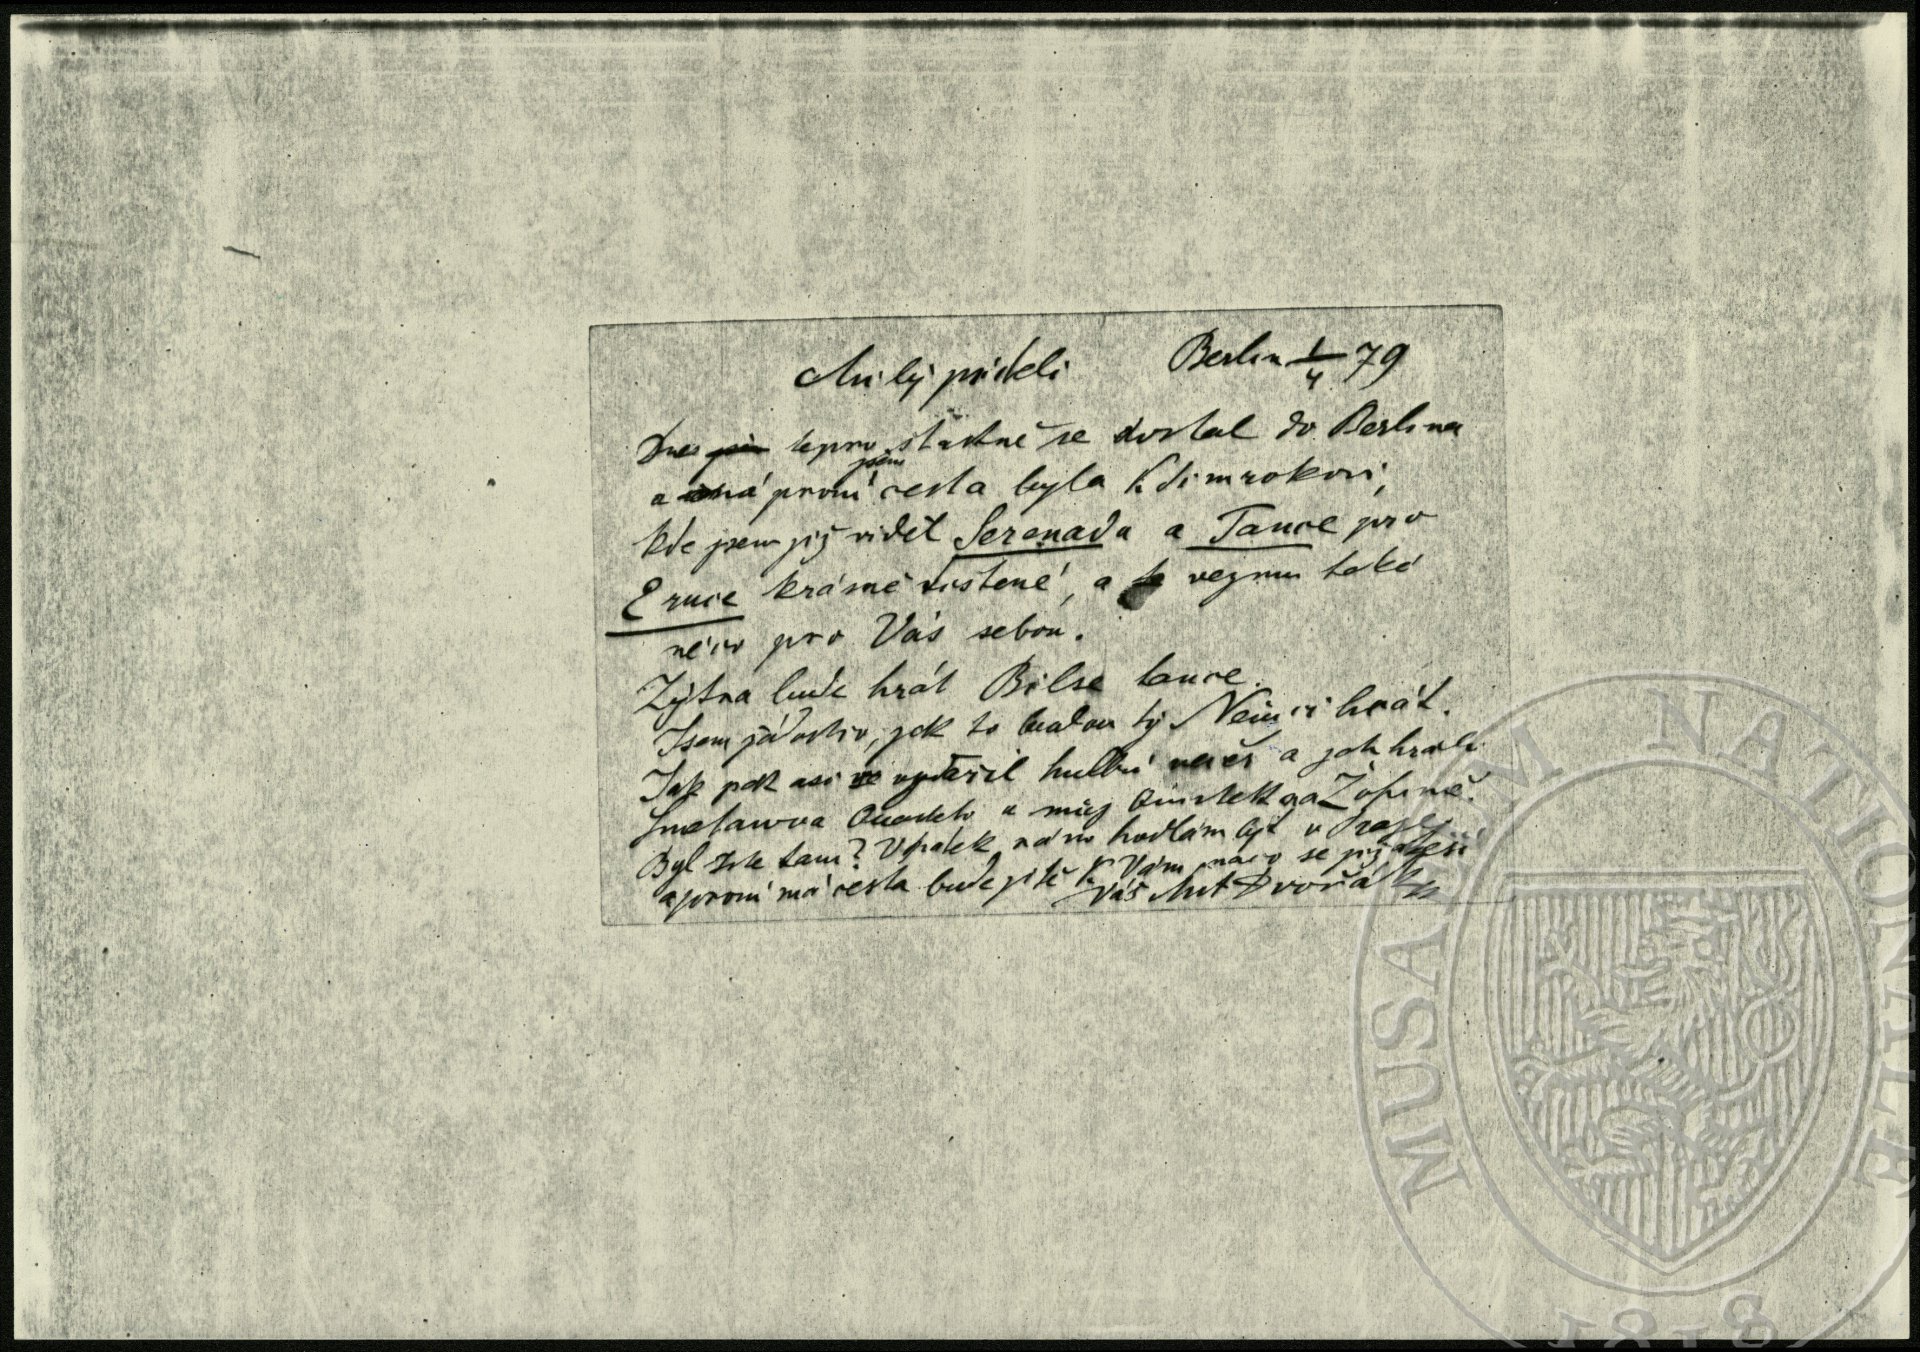 Milý příteli Berlin 1/4 79
Dnes jsem teprv šťastně se dostal do Berlina
jsem
a má první cesta byla k Simrokovi,
kde jsem již viděl Serenada a Tance pro
4 ruce krásně tištené, a vezmu také
něco pro Vás sebou.
Zýtra bude hrát Bilse tance.
Jsem žádostiv, jak to budou ty Němci hrát.
Jak pak asi se vydařil hudbní večer a jak hráli
Smetanova Quarteto a můj Quintet na Žofině.
Byl jste tam? V pátek ráno hodlám být v Praze
a první má cesta bude jistě k Vám, načež se již těší
Váš Ant Dvořák
MUSAEUM NATIONALE
1818